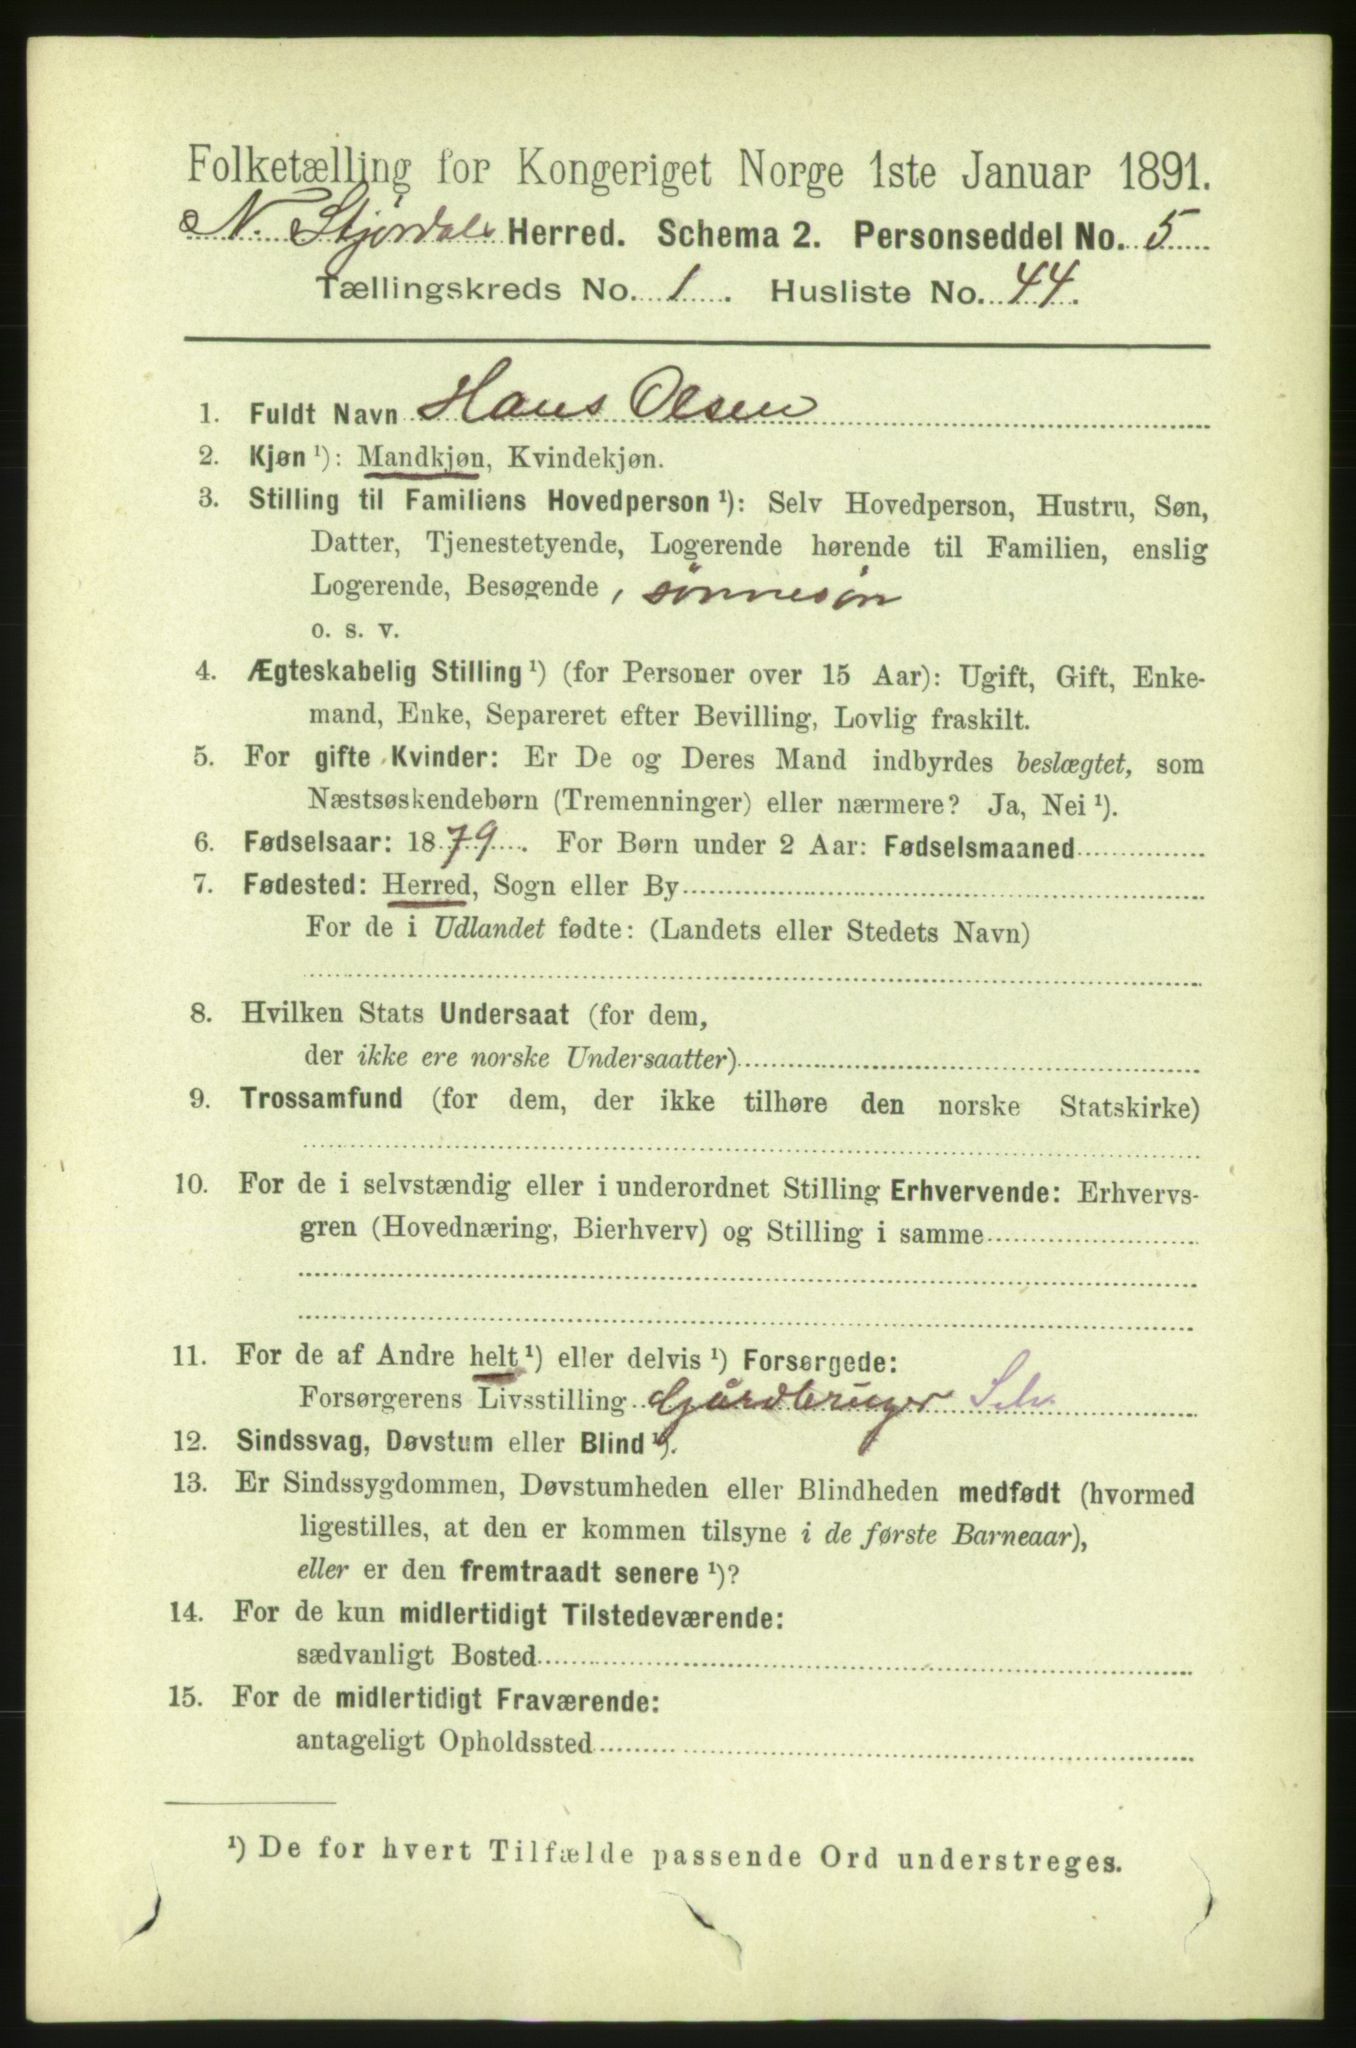 Folketælling for Kongeriget Norge 1ste Januar 1891.
N. Stjørdals Herred. Schema 2. Personseddel No. 5
Tællingskreds No. 1. Husliste No. 44.
1. Fuldt Navn Hans Olsen
2. Kjøn ¹): Mandkjøn, Kvindekjøn.
3. Stilling til Familiens Hovedperson ¹): Selv Hovedperson, Hustru, Søn,
Datter, Tjenestetyende, Logerende hørende til Familien, enslig
Logerende, Besøgende, sønnesøn
o. s. v.
4. Ægteskabelig Stilling ¹) (for Personer over 15 Aar): Ugift, Gift, Enke-
mand, Enke, Separeret efter Bevilling, Lovlig fraskilt.
5. For gifte Kvinder: Er De og Deres Mand indbyrdes beslægtet, som
Næstsøskendebørn (Tremenninger) eller nærmere? Ja, Nei ¹).
6. Fødselsaar: 1879. For Børn under 2 Aar: Fødselsmaaned
7. Fødested: Herred, Sogn eller By
For de i Udlandet fødte: (Landets eller Stedets Navn)
8. Hvilken Stats Undersaat (for dem,
der ikke ere norske Undersaatter)
9. Trossamfund (for dem, der ikke tilhøre den norske Statskirke)
10. For de i selvstændig eller i underordnet Stilling Erhvervende: Erhvervs-
gren (Hovednæring, Bierhverv) og Stilling i samme
11. For de af Andre helt ¹) eller delvis ¹) Forsørgede:
Forsørgerens Livsstilling Gårdbruger Selv
12. Sindssvag, Døvstum eller Blind ¹).
13. Er Sindssygdommen, Døvstumheden eller Blindheden medfødt (hvormed
ligestilles, at den er kommen tilsyne i de første Barneaar),
eller er den fremtraadt senere ¹)?
14. For de kun midlertidigt Tilstedeværende:
sædvanligt Bosted
15. For de midlertidigt Fraværende:
antageligt Opholdssted
¹) De for hvert Tilfælde passende Ord understreges.